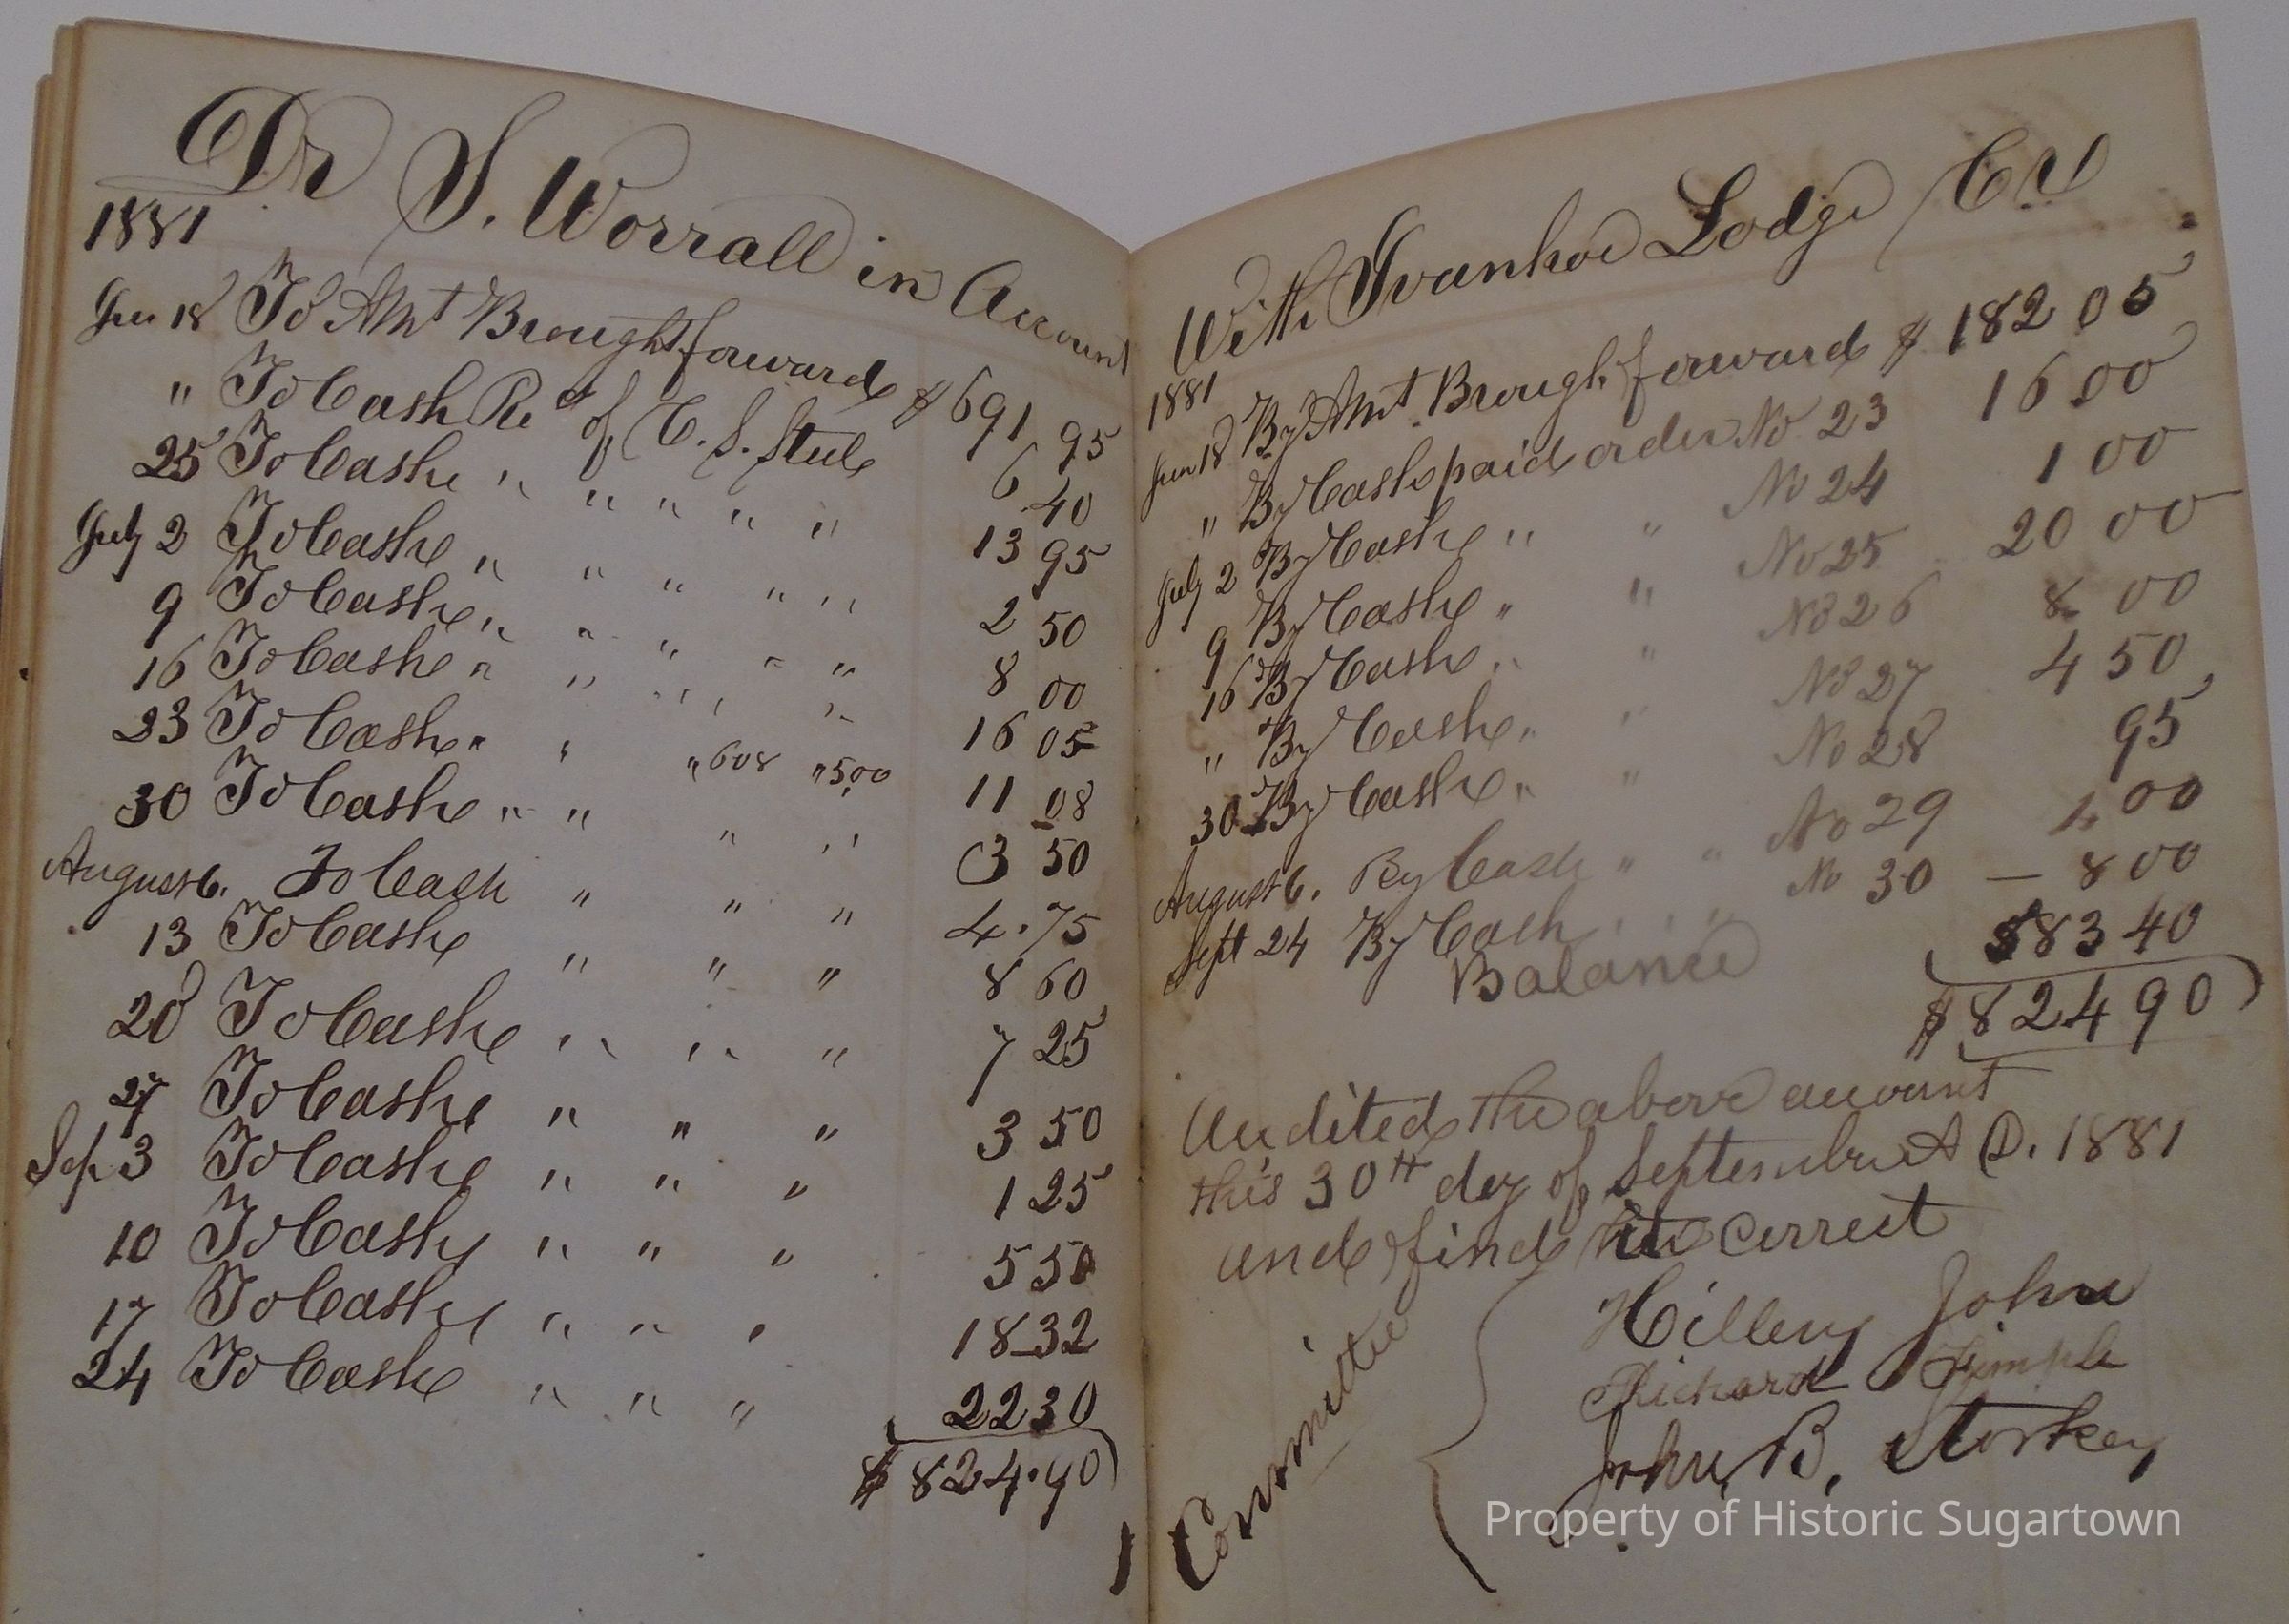 Dr S. Worrall in Account
1881
Jun 18 To Amt Brought forward $ 691 95
" To Cash Recd of C. S. Steele 6 40
25 To Cash " " " " " 13 95
July 2 To Cash " " " " " 2 50
9 To Cash " " " " " 8 00
16 To Cash " " " " 16 05
23 To Cash " " " 608 " 500 11 08
30 To Cash " " " " 3 50
August 6. To Cash " " " 4.75
13 To Cash " " " 8 60
20 To Cash " " " 7 25
27 To Cash " " " 3 50
Sep 3 To Cash " " " 1 25
10 To Cash " " " 5 50
17 To Cash " " " 18 32
24 To Cash " " " 22 30
$ 824.90
With Ivanhoe Lodge Cr
1881
Jun 18 By Amt Brough forward $ 182 05
" By Cash paid order No 23 16 00
July 2 By Cash " " No 24 1 00
9 By Cash " " No 25 20 00
16 By Cash " " No 26 8 00
" By Cash " " No 27 4 50
30 By Cash " " No 28 95
August 6. By Cash " " No 29 1 00
Sept 24 By Cash " " " No 30 — 8 00
Balance 583 40
$ 824 90
Audited the above account
this 30th day of September A D. 1881
and find it correct
Committee
Hillery John
Richard
John B.
Property of Historic Sugartown